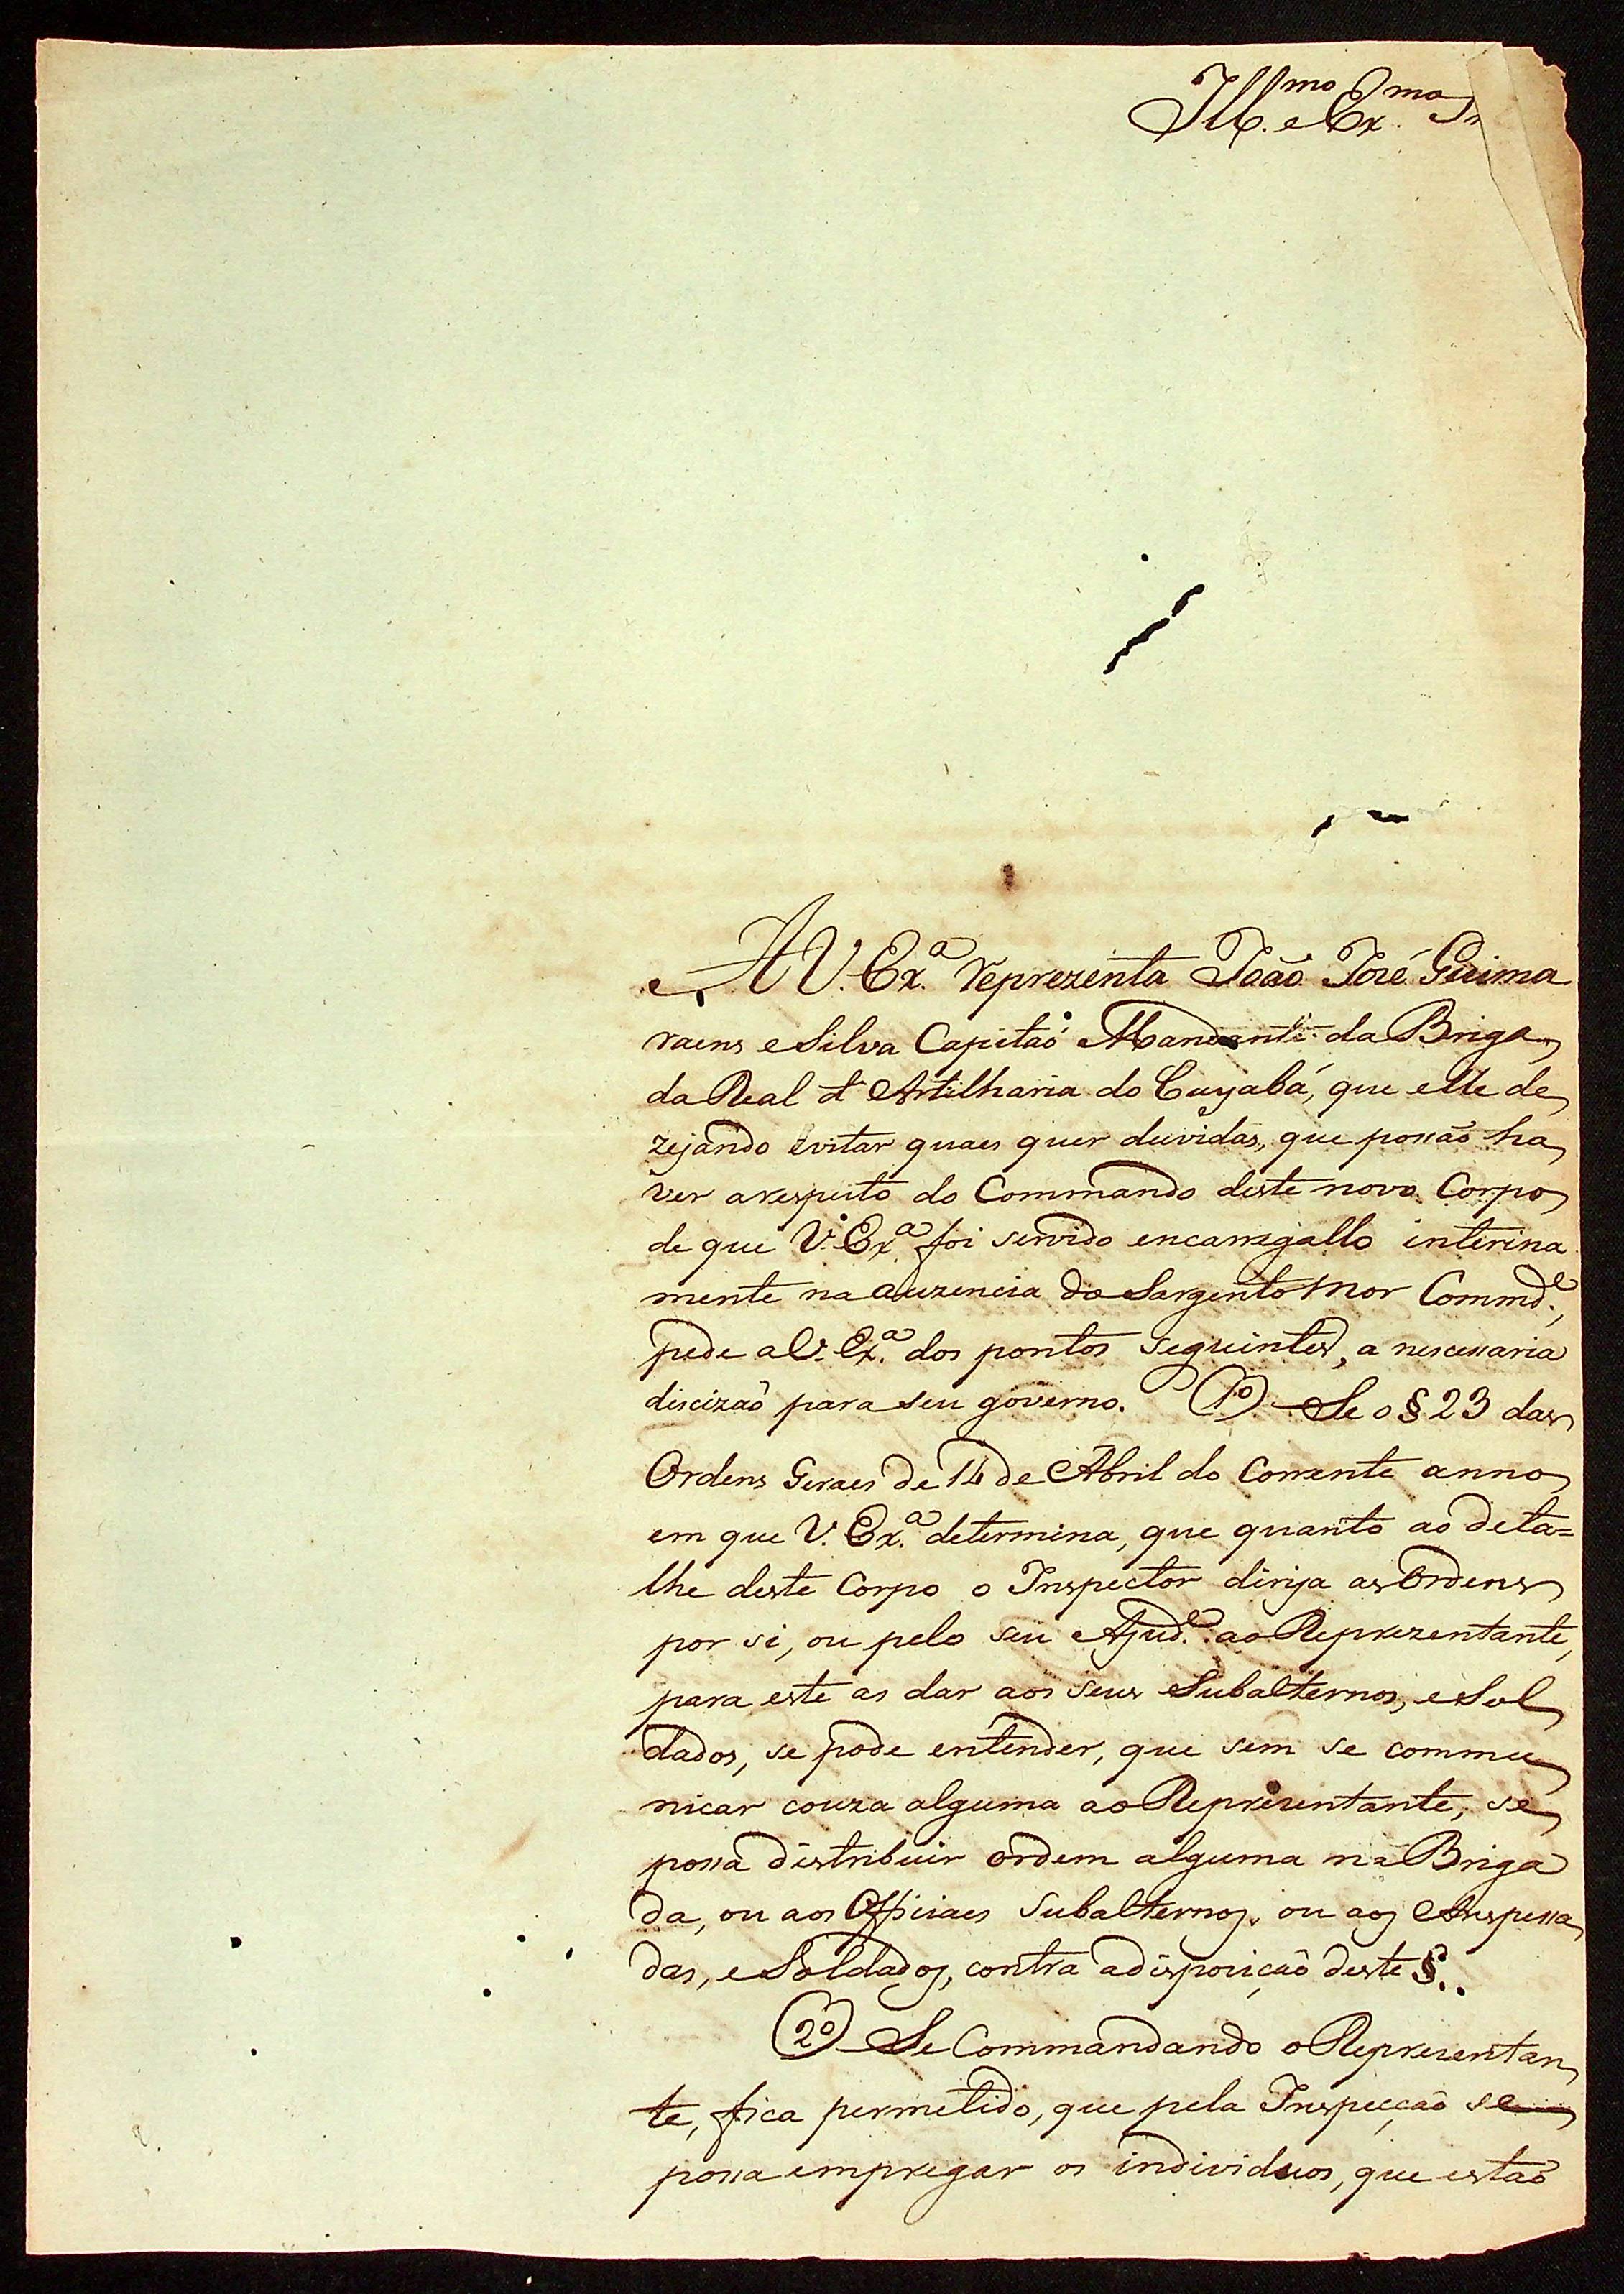 Ill.mo e Ex.mo Sr
A V. Ex.a reprezenta João José Guima
raens e Silva Capitaó Mandante da Briga
da Real d' Artilharia do Cuyabá, que elle de
zejando evitar quaes quer duvidas, que possão ha
ver a respeito do Commando deste novo Corpo
de que V. Ex.a foi servido encarregallo interina
mente na auzencia do Sargento Mor Commd.e,
pede a V. Ex.a dos pontos seguintes, a nescessaria
discizaõ para seu governo. (1º) Se o § 23 das
Ordens Geraes de 14 de Abril do Corrente anno
em que V. Ex.a determina, que quanto ao deta=
lhe deste Corpo o Inspector dirija as Ordens
por si, ou pelo seu Ajud.e ao Reprezentante,
para este as dar aos seus Subalternos, e Sol
dados, se pode entender, que sem se commu
nicar couza alguma ao Reprezentante, se
possa distribuir ordem alguma na Briga
da, ou aos Officiaes Subalternos, ou aos Anspessa
das, e Soldados, contra a disposiçaõ deste §..
(2º) Se Commandando o Representan
te, fica permetido, que pela Inspecçaõ se
possa empregar os individuos, que estaõ